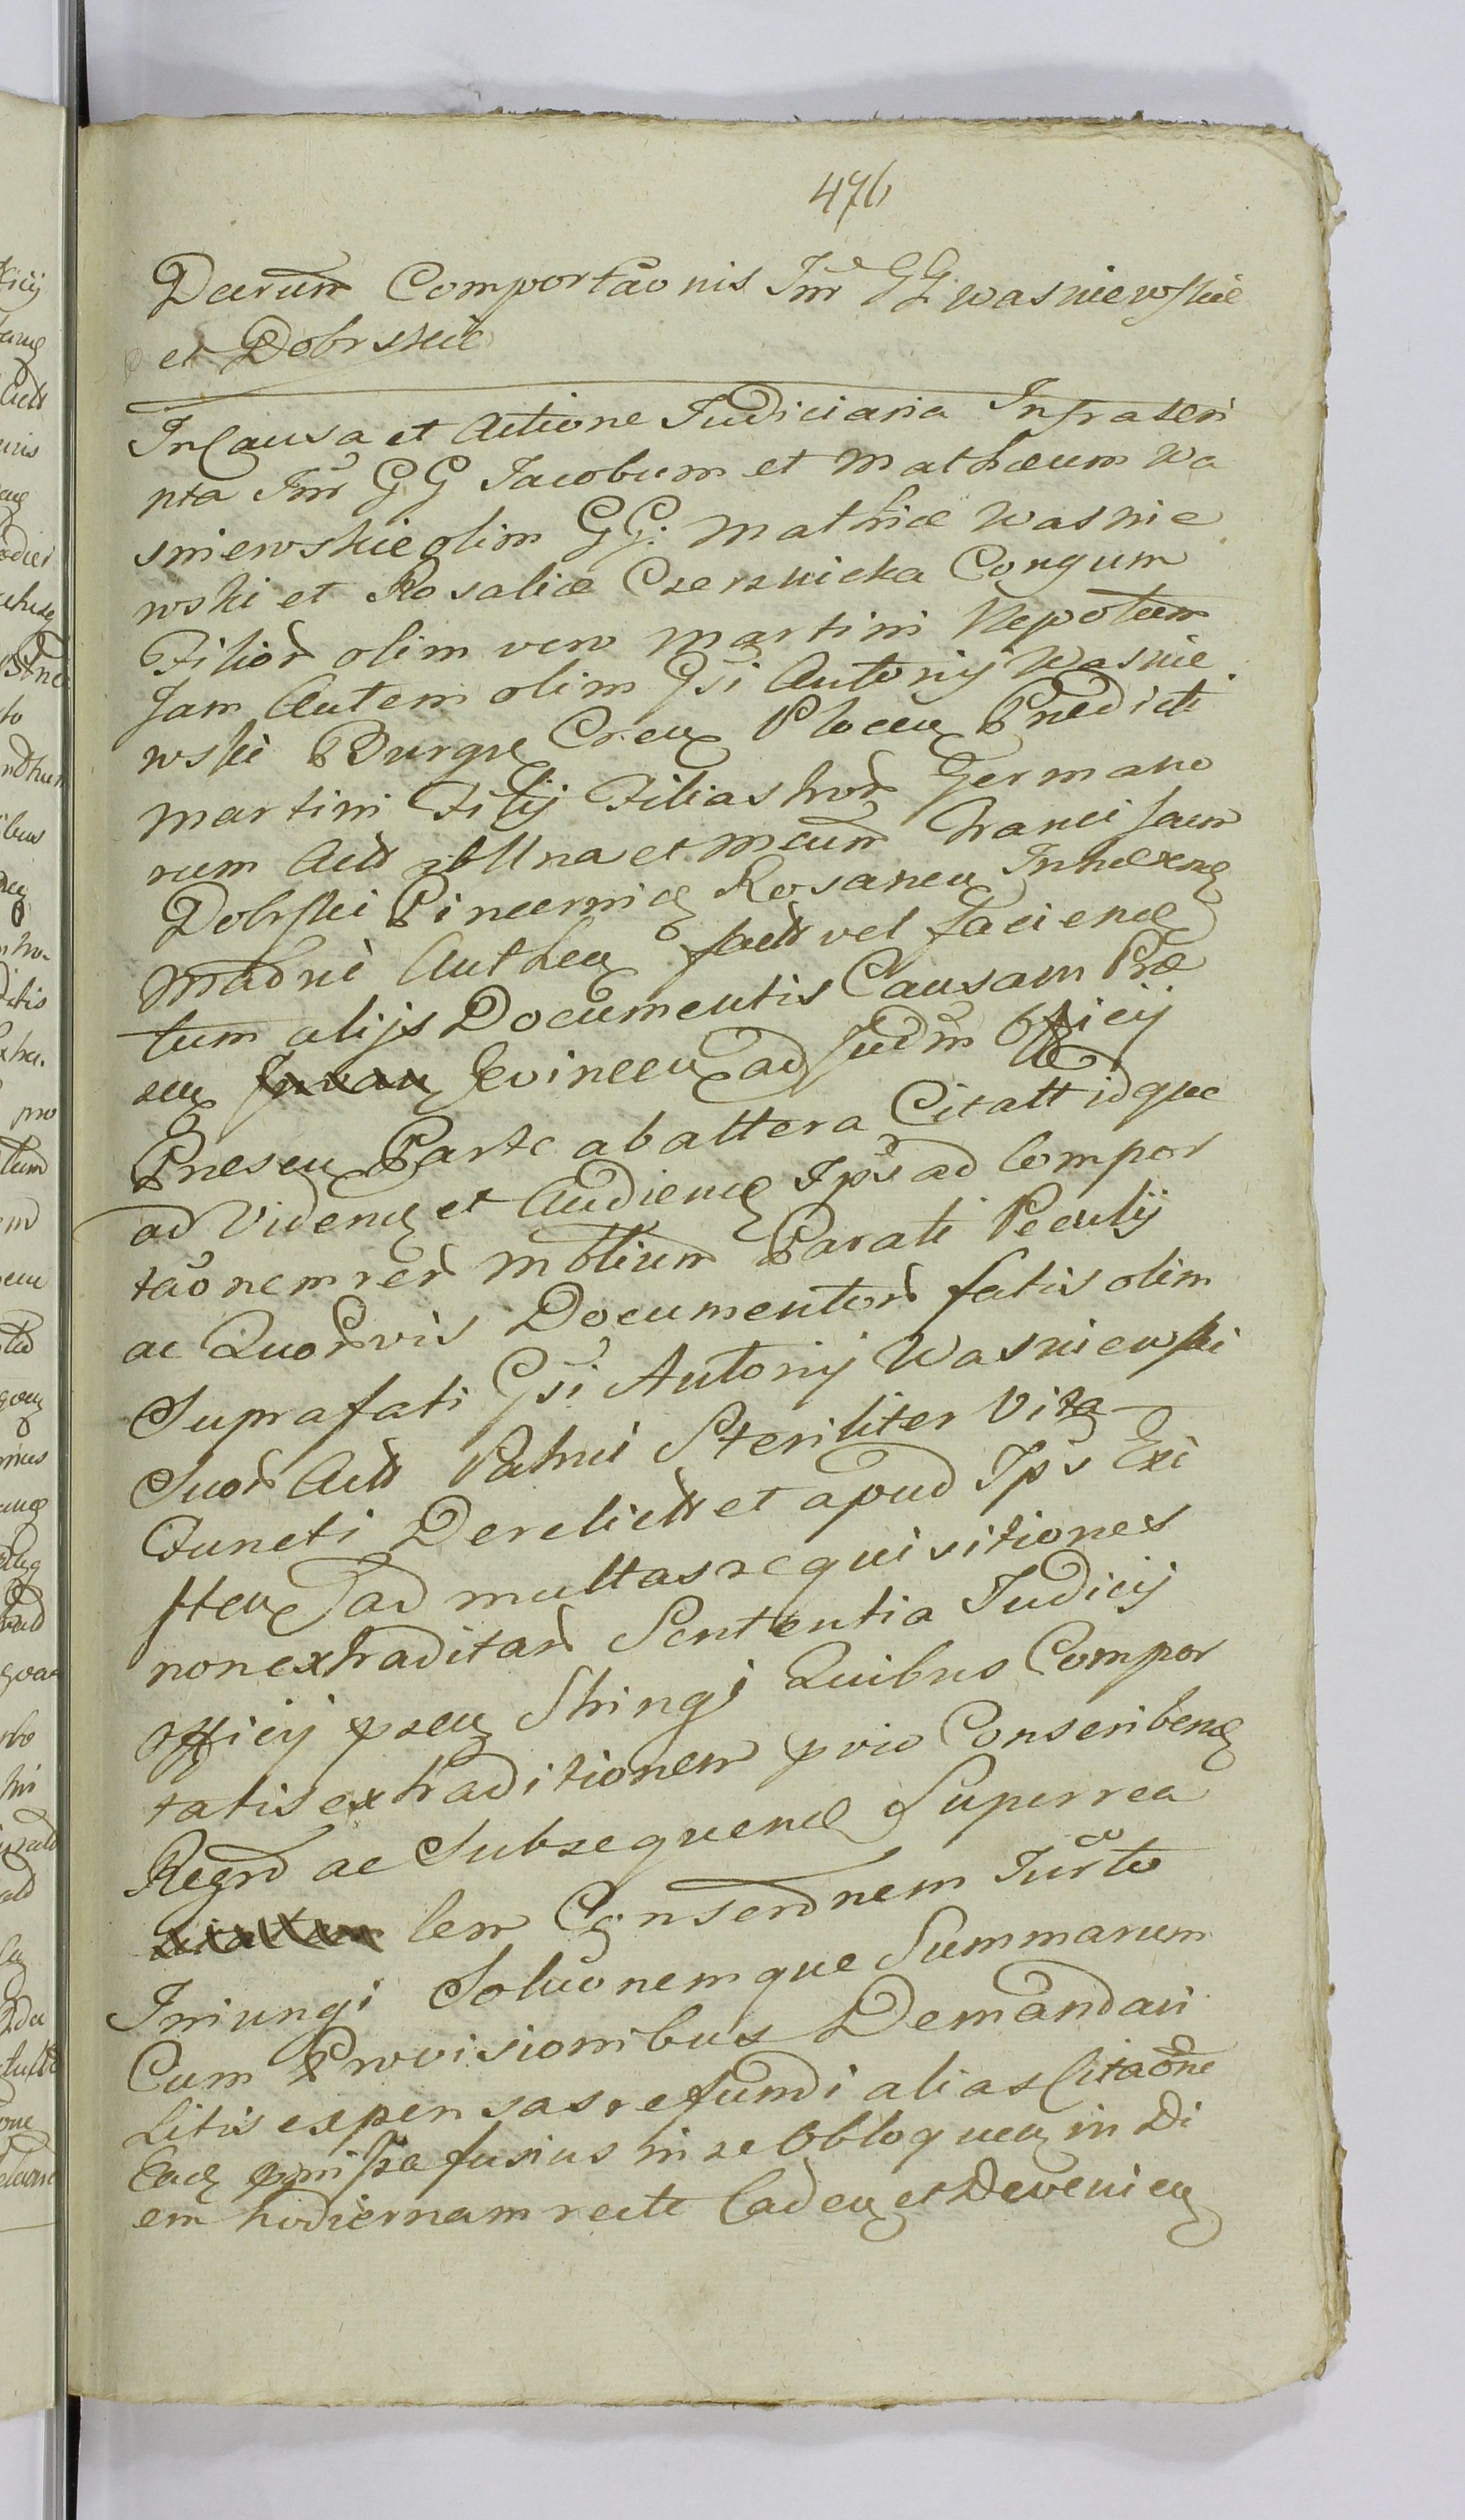 476
Decrum Comportaõnis Inr GG wasniewskie
et Dobrskie
In Causa et Actione Judiciaria Infrascri
pta Inr GG Jacobum et Mathæum Wa
sniewskie olim GG: Mathiæ Wasnie
wski et Rosaliæ Czerznicka Conjgum
Filior olim vero Martini Nepotum
Jam Autem olim Gsi Antonij Wasnie
wski Burgr Creu Plocen Prædicti
Martini Filij Filias hor Germano
rum Actt
et mcum Franciscum
Dobrski Pincernię Rosanen Innixeng
Madni Authen factt vel faciend
tum alijs Documentis Causam Præ
sen Evincen ad Judm Officij
Presen Parte ab altera Citatt idque
ad Videnę et Audienę Ips ad Compor
taõnem rer Mbtium Parati Peculij
ac Quorvis Documentor fatis olim
Suprafati Gsi Antonij Wasniewski
Suor Actt Patrui Steriliter Vita
Functi Derelictt et apud Ips Exi
sten ad multas requisitiones
non extraditar Sententia Judicij
Officij psen Stringi Quibus Compor
tatis extraditionem pvio Conscribend
Regrd ac Subsequend Superrea
lem Conserdnem Jurto
Iniungi Soluõnemque Summarum
Cum Provisionibus Demandari
Litis expensas refundi alias Citaõne
Eacę
fusius in se Obloquen in Di
em hodiernam recte Caden et Devenien